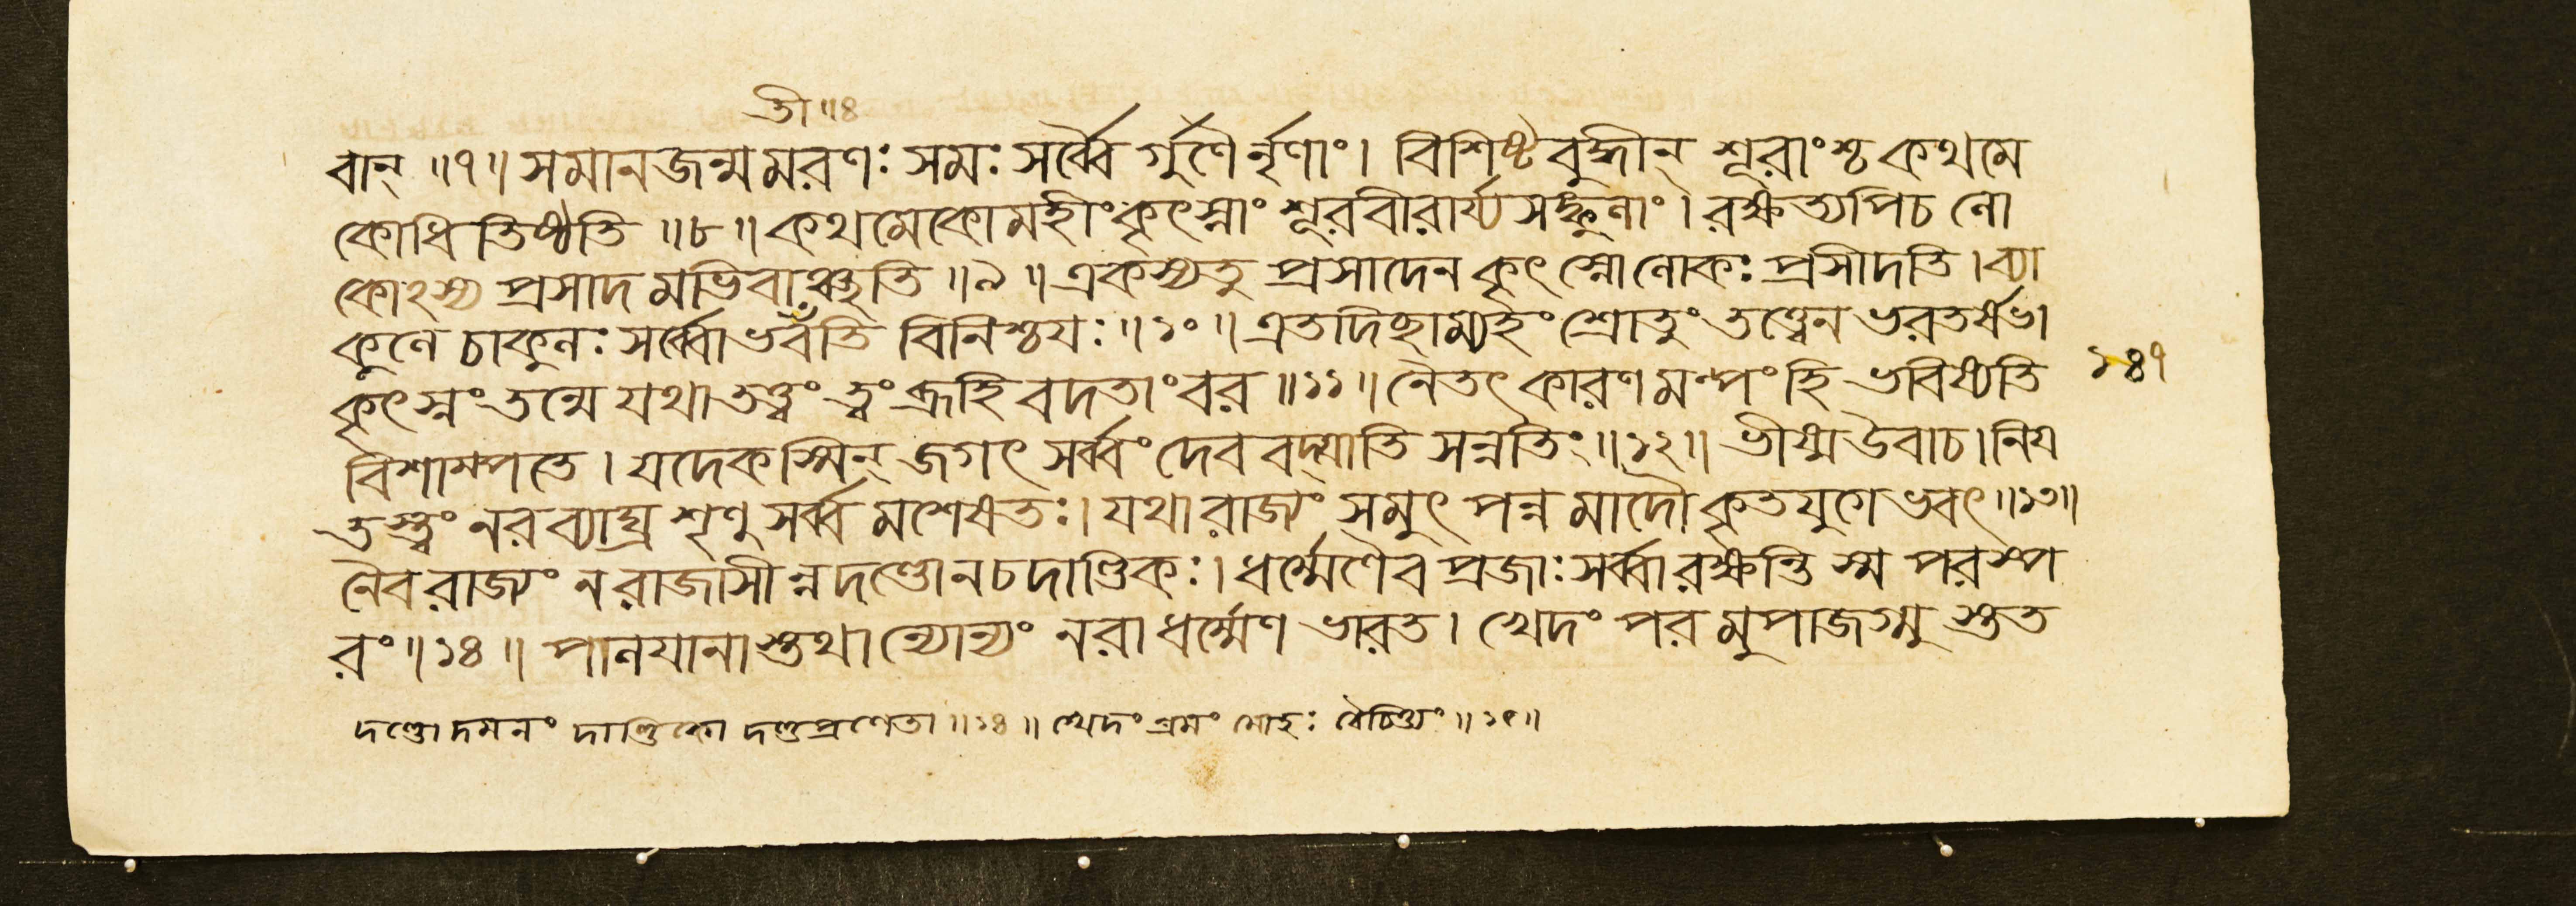 তী॥৪
বান্ ॥৭॥ সমানজন্মমরণঃ সমঃ সর্ব্বৈ র্গুণৈ র্নৃণাং। বিশিষ্টবুদ্ধীন্ শূরাংশ্চ কথমে
কোধি তিষ্ঠতি ॥৮॥ কথমেকো মহীং কৃৎস্নাং শূরবীরার্য্য সঙ্কুলাং। রক্ষত্যপিচ লো
কোঽস্য প্রসাদ মভিবাঞ্ছতি ॥৯॥ একস্যতু প্রসাদেন কৃৎস্নোলোকঃ প্রসীদতি। ব্যা
কুলে চাকুলঃ সর্ব্বো ভবতি বিনিশ্চয়ঃ ॥১০॥ এতদিছাম্যহং শ্রোতুং তত্ত্বেন ভরতর্ষভ।
কৃৎস্নং তন্মে যথা তত্ত্বং ত্বং ব্রূহি বদতাং বর ॥১১॥ নৈতৎ কারণমল্পং হি ভবিষ্যতি
বিশাম্পতে। যদেকস্মিন্ জগৎ সর্ব্বং দেববদ্যাতি সন্নতিং॥১২॥ ভীষ্ম উবাচ। নিয়
তস্ত্বং নরব্যাঘ্র শৃণু সর্ব্বমশেষতঃ। যথা রাজ্যং সমুৎ পন্নমাদৌ কৃতযুগেভবৎ॥১৩॥
নৈব রাজ্যং ন রাজাসীন্ন দণ্ডোনচদাণ্ডিকঃ। ধর্ম্মেণৈব প্রজাঃ সর্ব্বা রক্ষন্তি স্ম পরস্প
রং॥১৪॥ পালয়ানাস্তথান্যোন্যং নরা ধর্ম্মেণ ভারত। খেদং পরমুপাজগ্মু স্তত
১৪৭
দণ্ডো দমনং দাণ্ডিকো দণ্ডপ্রণেতা॥১৪॥ খেদং শ্রমং মোহঃ বৈচিত্ত্যং॥১৫॥